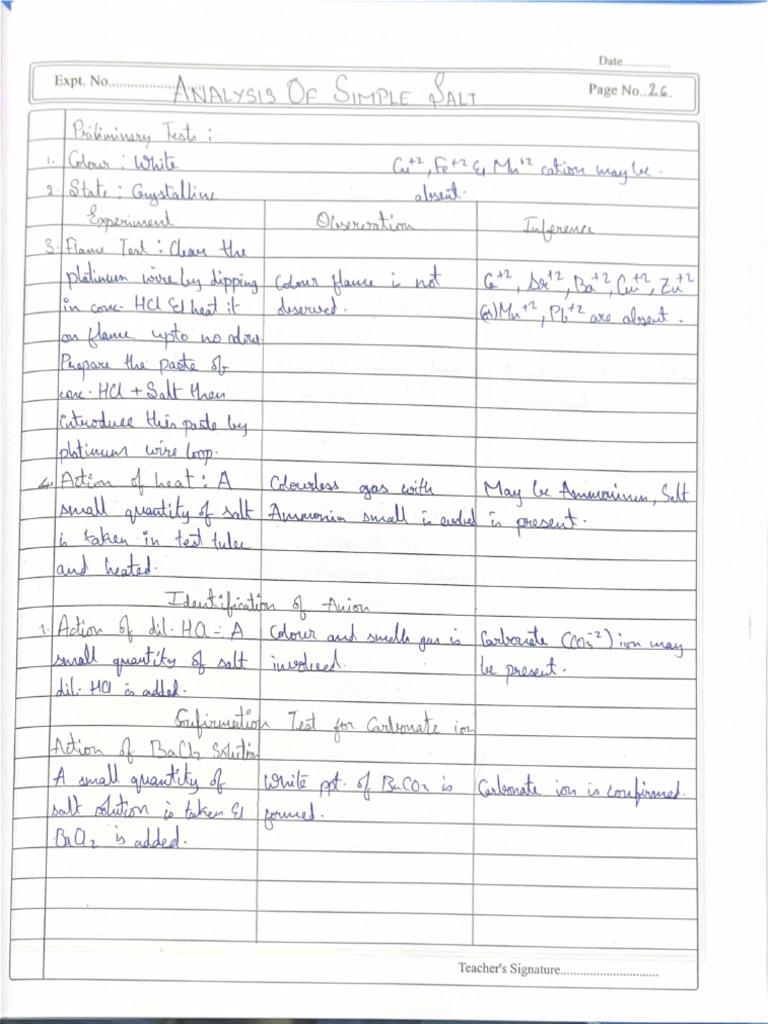 Date..............
Expt. No................. ANALYSIS OF SIMPLE SALT Page No..26.
Priliminary Tests :
1. Colour : White Cu+2, Fe+2 & Mn+2 cation may be
2. State : Crystalline absent.
Experiment Observation Inference
3. Flame Test : Clean the
platinum wire by dipping Colour flame is not Ca+2, Sr+2, Ba+2, Cu+2, Zn+2
in conc. HCl & heat it observed. (or) Mn+2, Pb+2 are absent.
on flame upto no colour.
Prepare the paste of
conc. HCl + Salt then
introduce this paste by
platinum wire loop.
4. Action of heat : A Colourless gas with May be Ammonium, Salt
small quantity of salt Ammonia small is evolved is present.
is taken in test tube
and heated.
Identification of Anion
1. Action of dil. HCl = A Colour and smells gas is Carbonate (CO3-2) ion may
small quantity of salt involved. be present.
dil. HCl is added.
Confirmation Test for Carbonate ion
Action of BaCl2 Solution
A small quantity of White ppt. of BaCO3 is Carbonate ion is confirmed.
salt solution is taken & formed.
BaCl2 is added.
Teacher's Signature..............................